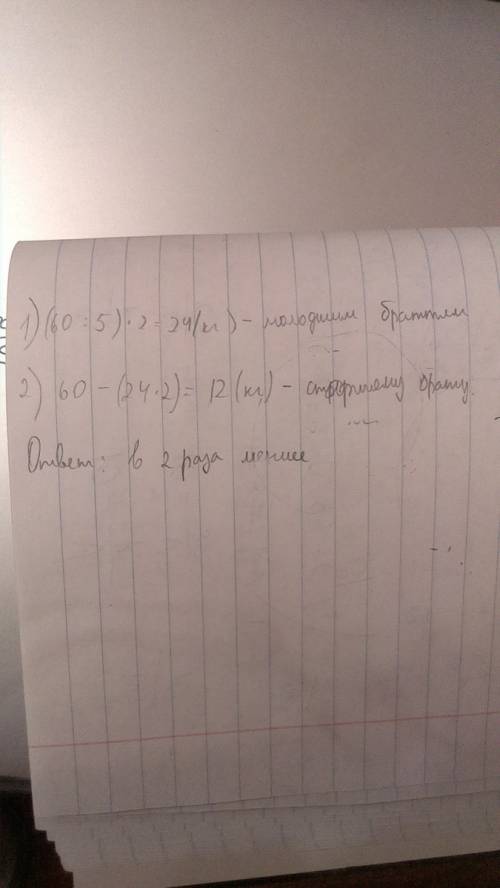 1) (60 : 5) · 2 = 24 (кг) - молодшим братьям
2) 60 - (24 · 2) = 12 (кг) - старшему брату.
Ответ: в 2 раза меньше